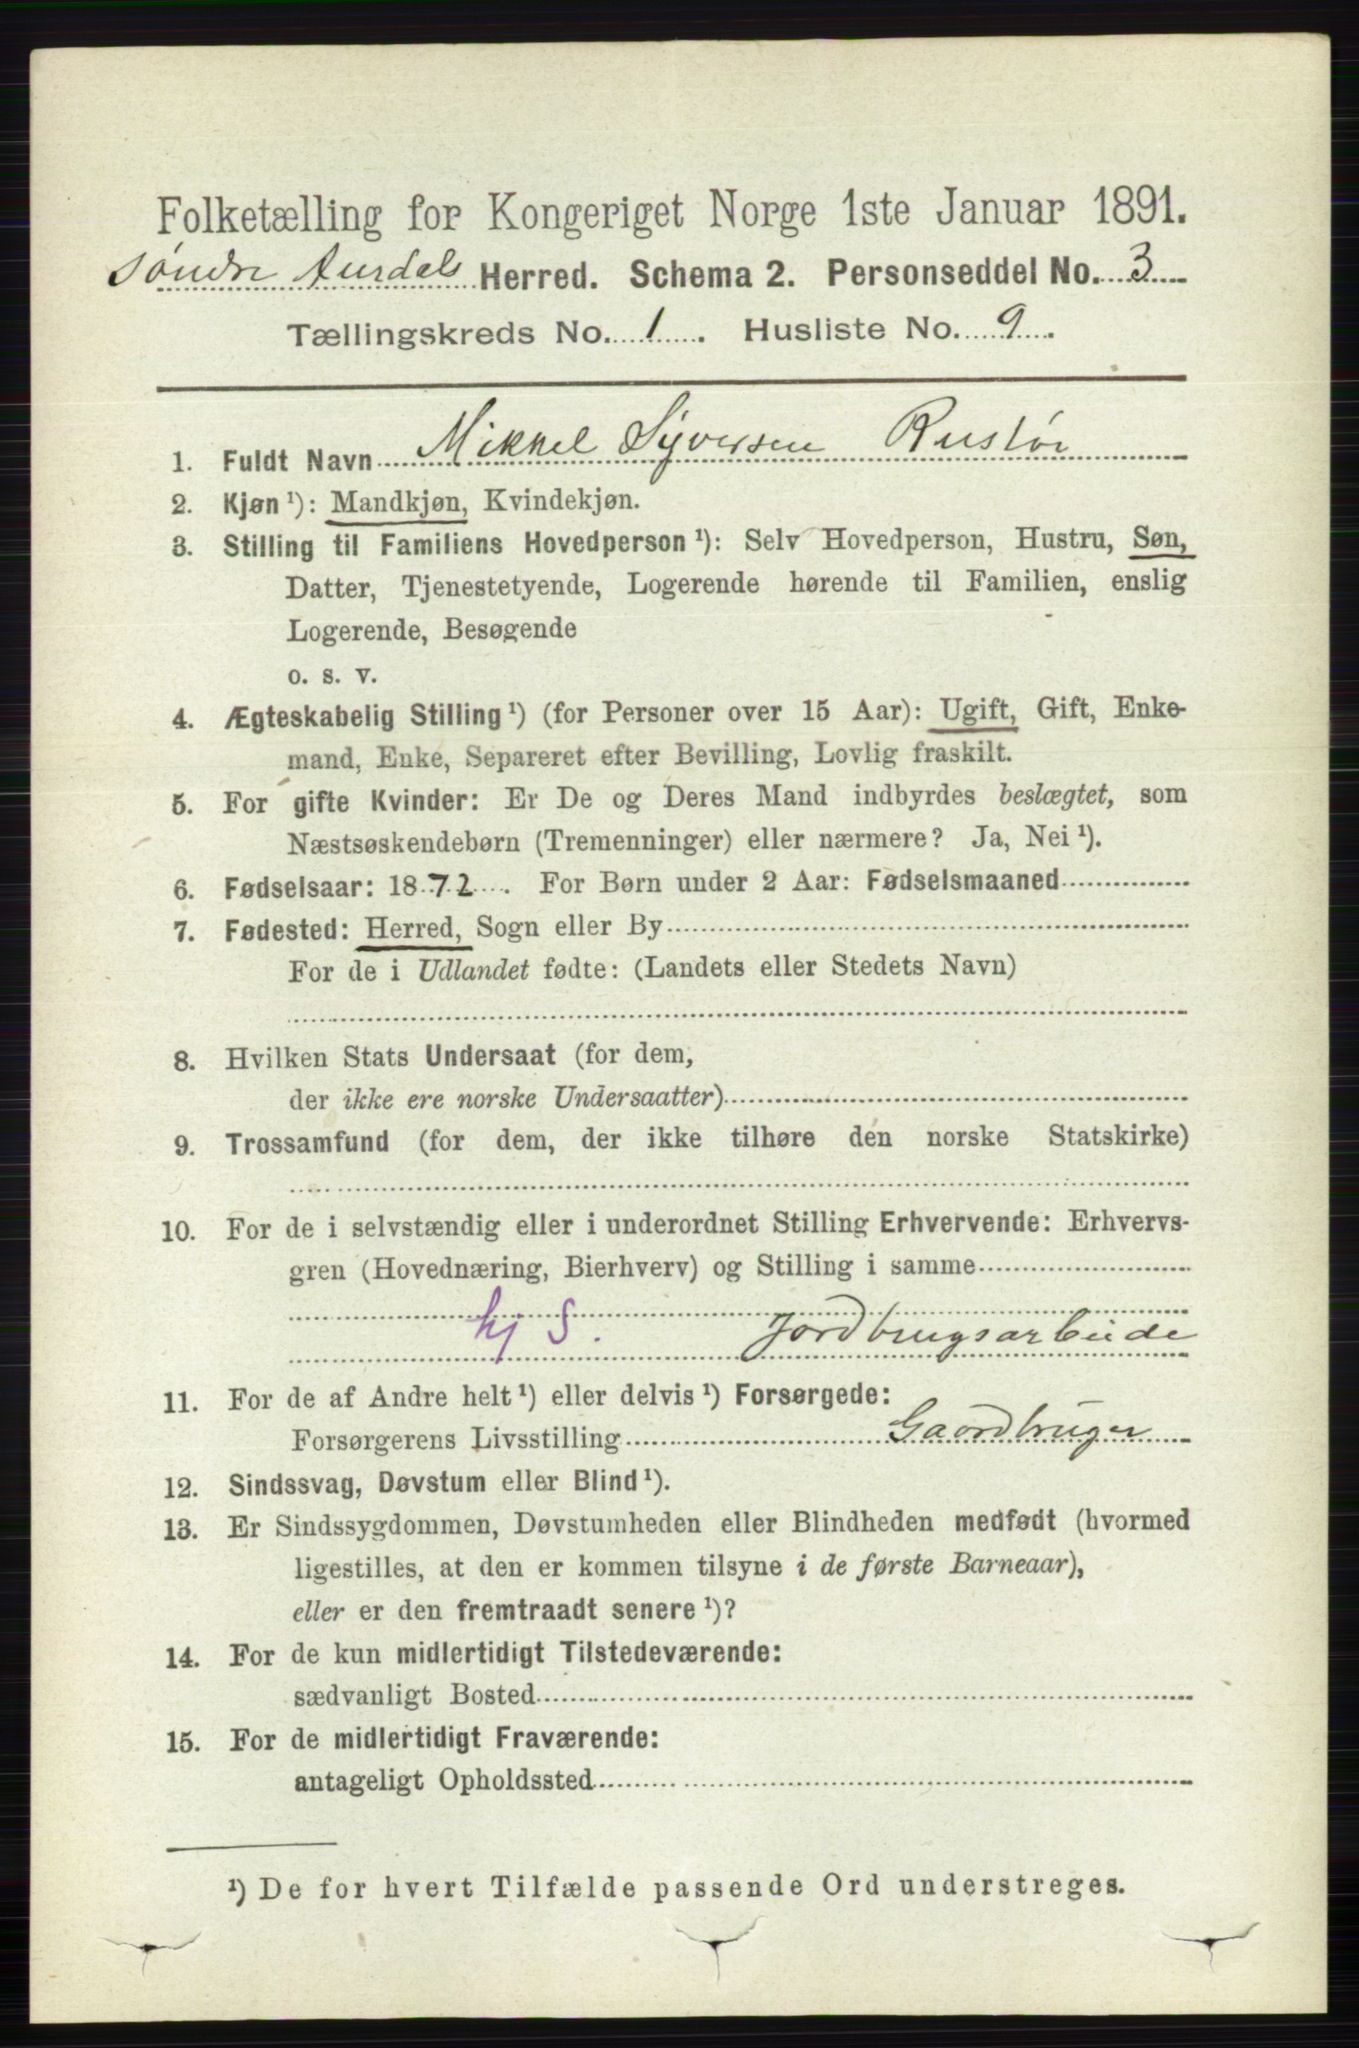 Folketælling for Kongeriget Norge 1ste Januar 1891.
Søndre Aurdals Herred. Schema 2. Personseddel No. 3
Tællingskreds No. 1. Husliste No. 9.
1. Fuldt Navn Mikkel Syversen Rustør
2. Kjøn ¹): Mandkjøn, Kvindekjøn.
3. Stilling til Familiens Hovedperson ¹): Selv Hovedperson, Hustru, Søn,
Datter, Tjenestetyende, Logerende hørende til Familien, enslig
Logerende, Besøgende
o. s. v.
4. Ægteskabelig Stilling ¹) (for Personer over 15 Aar): Ugift, Gift, Enke-
mand, Enke, Separeret efter Bevilling, Lovlig fraskilt.
5. For gifte Kvinder: Er De og Deres Mand indbyrdes beslægtet, som
Næstsøskendebørn (Tremenninger) eller nærmere? Ja, Nei ¹).
6. Fødselsaar: 1872. For Børn under 2 Aar: Fødselsmaaned
7. Fødested: Herred, Sogn eller By
For de i Udlandet fødte: (Landets eller Stedets Navn)
8. Hvilken Stats Undersaat (for dem,
der ikke ere norske Undersaatter)
9. Trossamfund (for dem, der ikke tilhøre den norske Statskirke)
10. For de i selvstændig eller i underordnet Stilling Erhvervende: Erhvervs-
gren (Hovednæring, Bierhverv) og Stilling i samme
hj S. Jordbrugsarbeide
11. For de af Andre helt ¹) eller delvis ¹) Forsørgede:
Forsørgerens Livsstilling Gaardbruger
12. Sindssvag, Døvstum eller Blind ¹).
13. Er Sindssygdommen, Døvstumheden eller Blindheden medfødt (hvormed
ligestilles, at den er kommen tilsyne i de første Barneaar),
eller er den fremtraadt senere ¹)?
14. For de kun midlertidigt Tilstedeværende:
sædvanligt Bosted
15. For de midlertidigt Fraværende:
antageligt Opholdssted
¹) De for hvert Tilfælde passende Ord understreges.